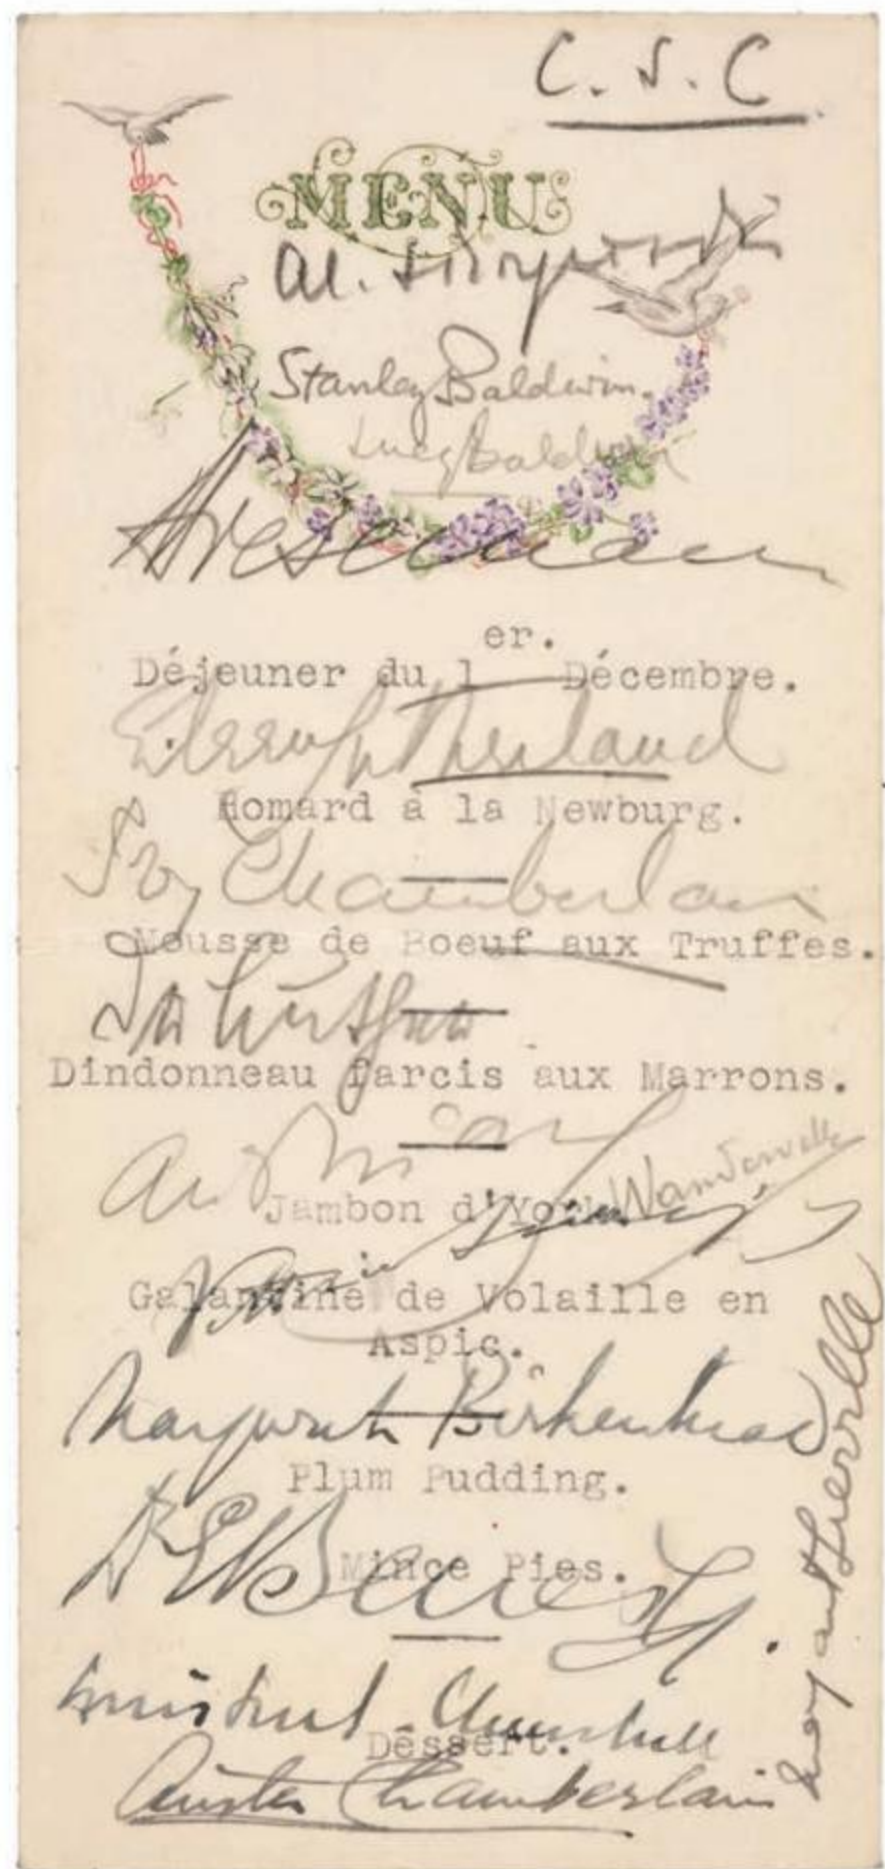 C. S. C
MENU
Al. Skrzynski
Stanley Baldwin.
Lucy Baldwin
Stresemann
er.
Déjeuner du 1 Décembre.
Eileen Sutherland
Homard à la Newburg.
Ivy Chamberlain
Mousse de Boeuf aux Truffes.
Dr Luther
Dindonneau farcis aux Marrons.
Ar Briand
Vandervelde
Jambon d'York
Galantine de Volaille en
Aspic.
Margaret Birkenhead
Plum Pudding.
Dr E Benes
Mince Pies.
Winston S. Churchill
Déssert.
Austen Chamberlain